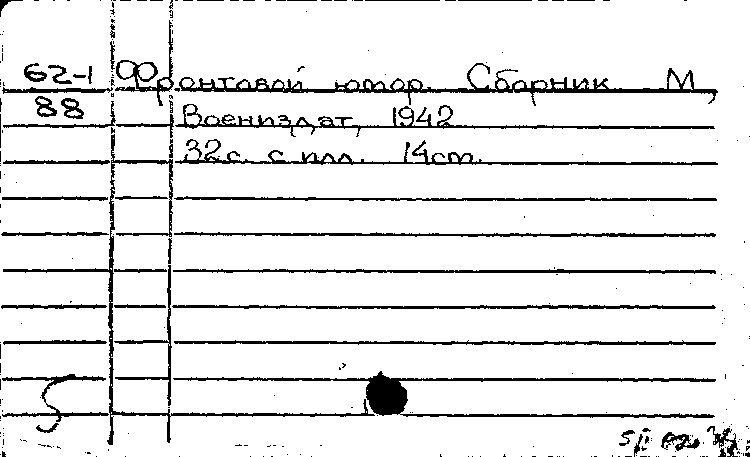 62-1 Фронтовой юмор. Сборник М,
88 Воениздат, 1942
32с. с илл. 14cm.
5